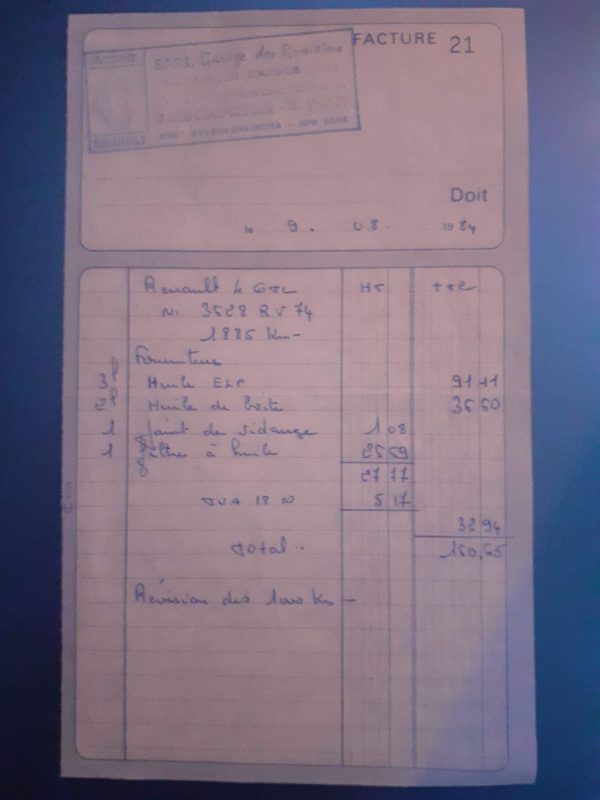 FACTURE 21
Garage des
RENAULT
Doit
le 9. 08 1984
Renault 4 GTL HT TTC
N. 3528 RV 74
1885 Km
Fourniture
3 Huile ELF 91 11
2 Huile de boite 36 60
1 Joint de vidange 1 08
1 filtre à huile 26 69
27 77
TVA 18 5 17
32 94
Total. 160,65
Révision des 1000 Km